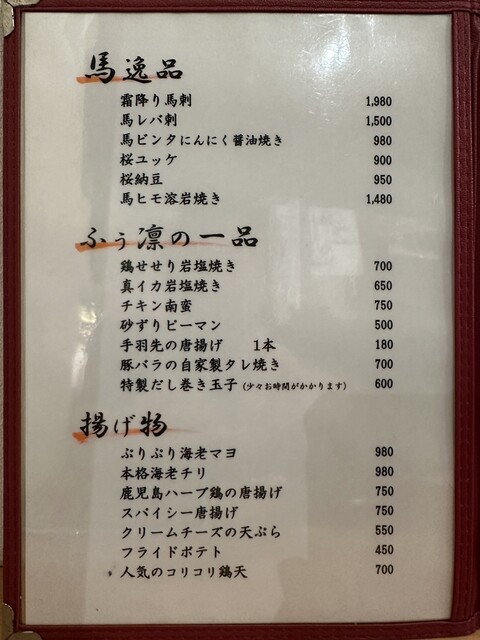 馬逸品
霜降り馬刺 1,980
馬レバ刺 1,500
馬ビンタにんにく醤油焼き 980
桜ユッケ 900
桜納豆 950
馬ヒモ溶岩焼き 1,480
ふぅ凛の一品
鶏せせり岩塩焼き 700
真イカ岩塩焼き 650
チキン南蛮 750
砂ずりピーマン 500
手羽先の唐揚げ 1本 180
豚バラの自家製タレ焼き 700
特製だし巻き玉子(少々お時間がかかります) 600
揚げ物
ぷりぷり海老マヨ 980
本格海老チリ 980
鹿児島ハーブ鶏の唐揚げ 750
スパイシー唐揚げ 750
クリームチーズの天ぷら 550
フライドポテト 450
人気のコリコリ鶏天 700